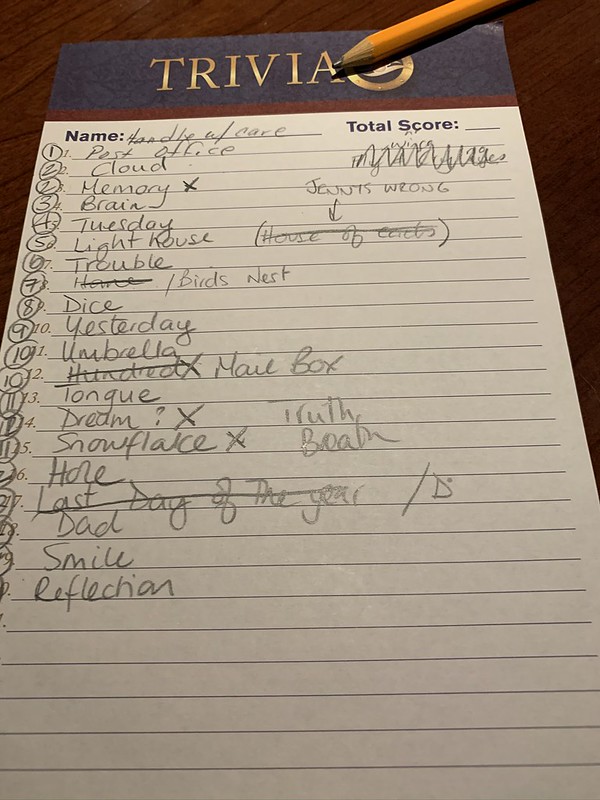 TRIVIA
Name: Handle w/ care Total Score:
1 1. Post Office
2 2. Cloud
2 3. Memory x JENNIS WRONG
3 4. Brain
4 5. Tuesday
5 6. Light house (House of cards)
6 7. Trouble
7 8. Home / Birds Nest
8 9. Dice
9 10. Yesterday
10 11. Umbrella
10 12. Hundred X Mail Box
11 13. Tongue
14. Dream ? X Truth
11 15. Snowflake x Breath
16. Hole
17. Last Day of The year / D
18. Dad
Smile
Reflection